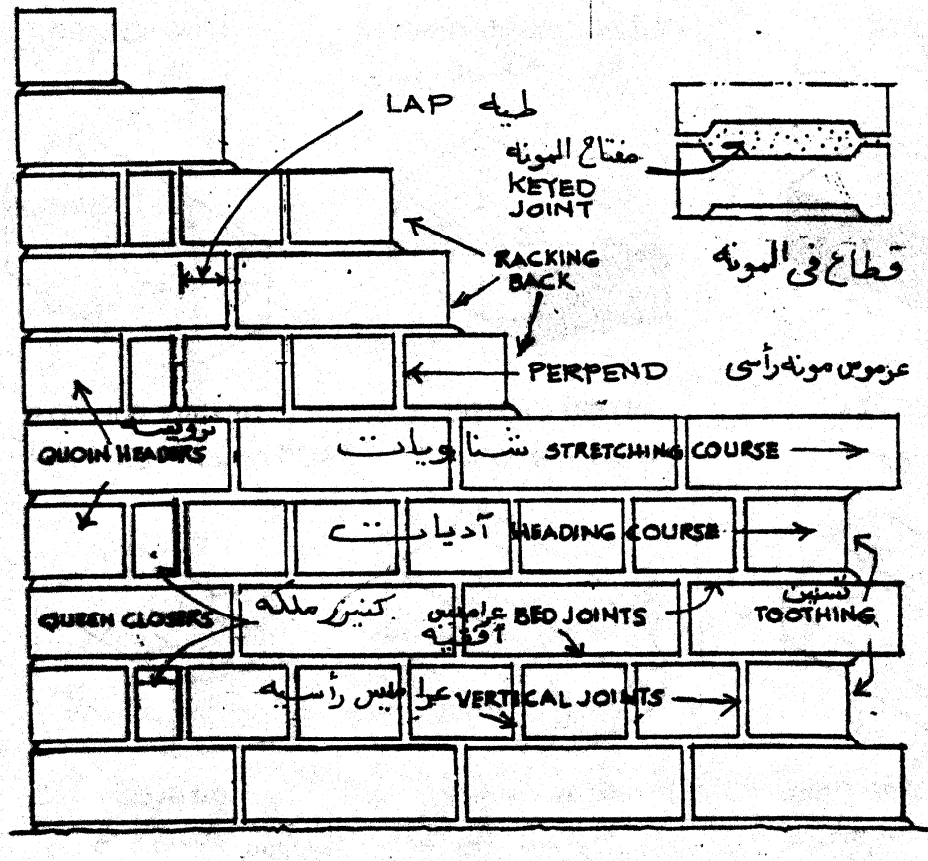 LAP طيه
مفتاح المونه
KEYED
JOINT
قطاع فى المونه
RACKING
BACK
PERPEND
عرموس مونه رأسى
QUOIN HEADERS
شناويات STRETCHING COURSE
آديات HEADING COURSE
QUEEN CLOSERS
كنيزر ملكه
عراميس BED JOINTS
أفقيه
تسنين
TOOTHING
عراميس رأسيه VERTICAL JOINTS